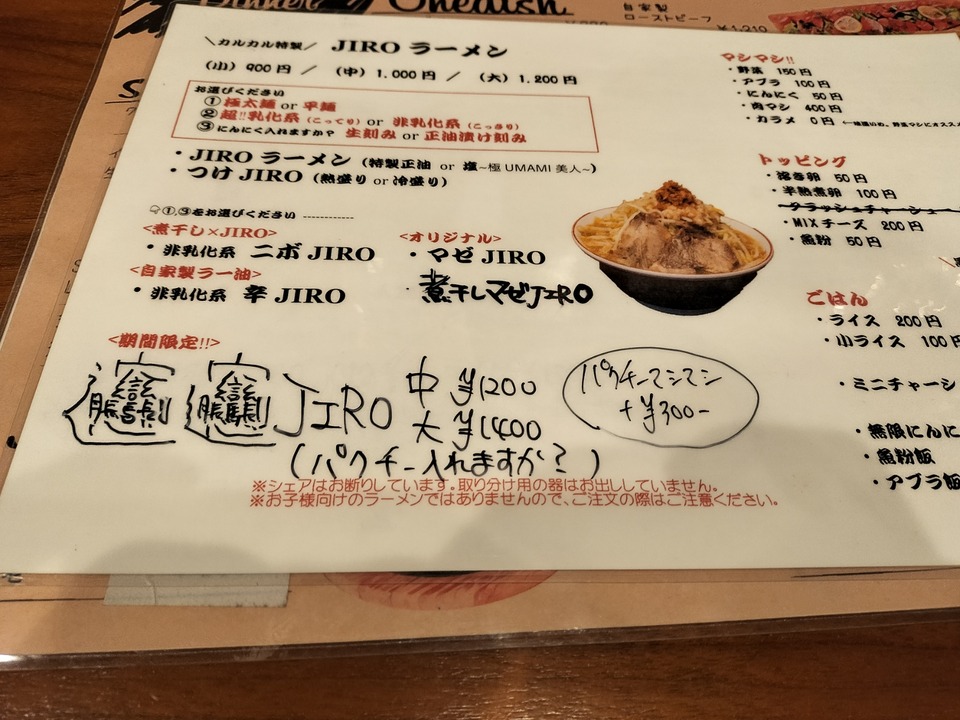 Dinner
Onedish
自家製
ローストビーフ
¥1,210
＼カルカル特製／ JIRO ラーメン
（小）900円 ／ （中）1,000円 ／ （大）1,200円
お選びください
①極太麺 or 平麺
②超!!乳化系（こってり） or 非乳化系（こっさり）
③にんにく入れますか？ 生刻み or 正油漬け刻み
・JIRO ラーメン（特製正油 or 塩~極UMAMI美人~）
・つけJIRO（熱盛り or 冷盛り）
☟①,③をお選びください ------------
<煮干し×JIRO>
・非乳化系 ニボJIRO
<自家製ラー油>
・非乳化系 辛JIRO
<オリジナル>
・マゼJIRO
・煮干しマゼJIRO
<期間限定!!>
JIRO 中 ¥1200
大 ¥1400
（パクチー入れますか？）
パクチーマシマシ
+¥300-
※シェアはお断りしています。取り分け用の器はお出ししていません。
※お子様向けのラーメンではありませんので、ご注文の際はご注意ください。
マシマシ!!
・野菜 150円
・アブラ 100円
・にんにく 50円
・肉マシ 400円
・カラメ 0円
トッピング
・溶き卵 50円
・半熟煮卵 100円
・クラッシュチャーシュー
・MIXチーズ 200円
・魚粉 50円
ごはん
・ライス 200円
・小ライス 100円
・ミニチャーシ
・無限にんに
・魚粉飯
・アブラ飯